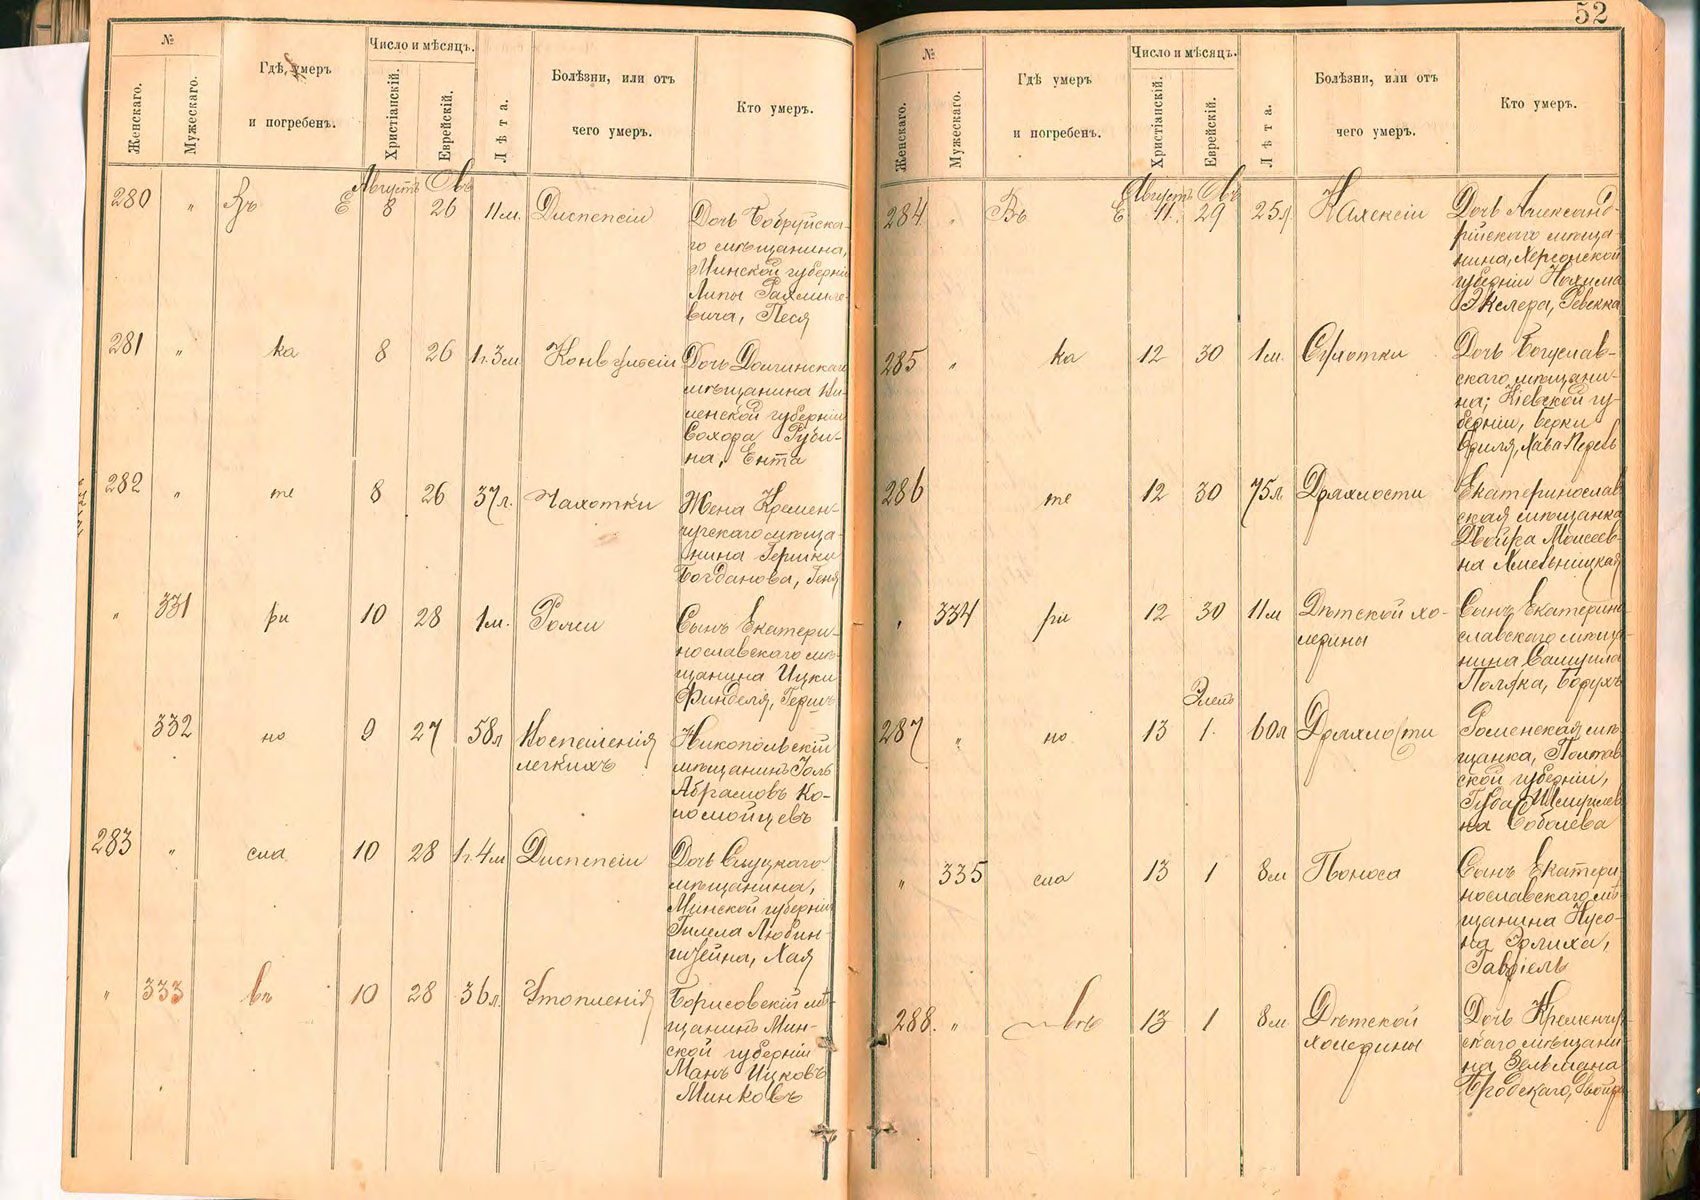 52
№
Женскаго.
Мужескаго.
Гдѣ умеръ
и погребенъ.
Число и мѣсяцъ.
Христіанскій.
Еврейскій.
Лѣта.
Болѣзни, или отъ
чего умеръ.
Кто умеръ.
Августъ Овъ
280 " Въ Е 8 26 11 м. Диспепсіи
Дочь Бобруйска-
го мѣщанина,
Минской губерніи
Липы Рахмиле-
вича, Песя
281 " ка 8 26 1 г. 3 м Конвульсіи
Дочь Долгинскаго
мѣщанина Ви-
ленской губерніи
Сохора Руби-
на, Ента
282 " те 8 26 37 л. Чахотки
Жена Кремен-
чугскаго мѣща-
нина Гершки
Богданова, Геня
" 331 ри 10 28 1 м. Рожи
Сынъ Екатери-
нославскаго мѣ-
щанина Ицки
Финделя, Гершъ
332 но 9 27 58 л Воспаленія
легкихъ
Никопольскій
мѣщанинъ
Абрамовъ Ко-
ломойцевъ
283 " сла 10 28 1 г. 4 м Диспепсіи
Дочь Слуцкаго
мѣщанина,
Минской губерніи
Гилела Любин-
штейна, Хая
" 333 въ 10 28 36 л. Утопленія
Борисовскій мѣ-
щанинъ Мин-
ской губерніи
Манъ Ицковъ
Минковъ
№
Женскаго.
Мужескаго.
Гдѣ умеръ
и погребенъ.
Число и мѣсяцъ.
Христіанскій.
Еврейскій.
Лѣта.
Болѣзни, или отъ
чего умеръ.
Кто умеръ.
Августъ Овъ
284 " Въ Е 11. 29 25 л Кахексіи
Дочь Александ-
рійскаго мѣща-
нина, Херсонской
губерніи Нохима
Экслера, Ревекка
285 " ка 12 30 1 м. Сухотки
Дочь Богуслав-
скаго мѣщани-
на, Кіевской гу-
берніи, Берки
Хава-Перель
286 те 12 30 75 л Дряхлости
Екатеринослав
ская мѣщанка
Двойра Моисеев-
на Хмельницкая
" 334 ри 12 30 11 м Дѣтской хо-
лерины
Сынъ Екатерино
славскаго мѣща-
нина Самуила
Поляка, Борухъ
Элелъ
287 " но 13 1. 60 л Дряхлости
Роменская мѣ-
щанка, Полтав
ской губерніи,
Шмуилов
на Соболева
" 335 сла 13 1 8 м Поноса
Сынъ Екатери
нославскаго мѣ
щанина Нусо-
на Эрлиха,
Гавріель
288. " въ 13 1 8 м. Дѣтской
холерины
Дочь Кременчуг-
скаго мѣщани
на Зельмана
Бродскаго, Двойра